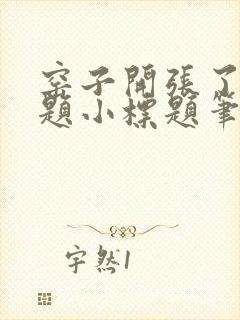 窑子開張了
題小標題筆
宇然1